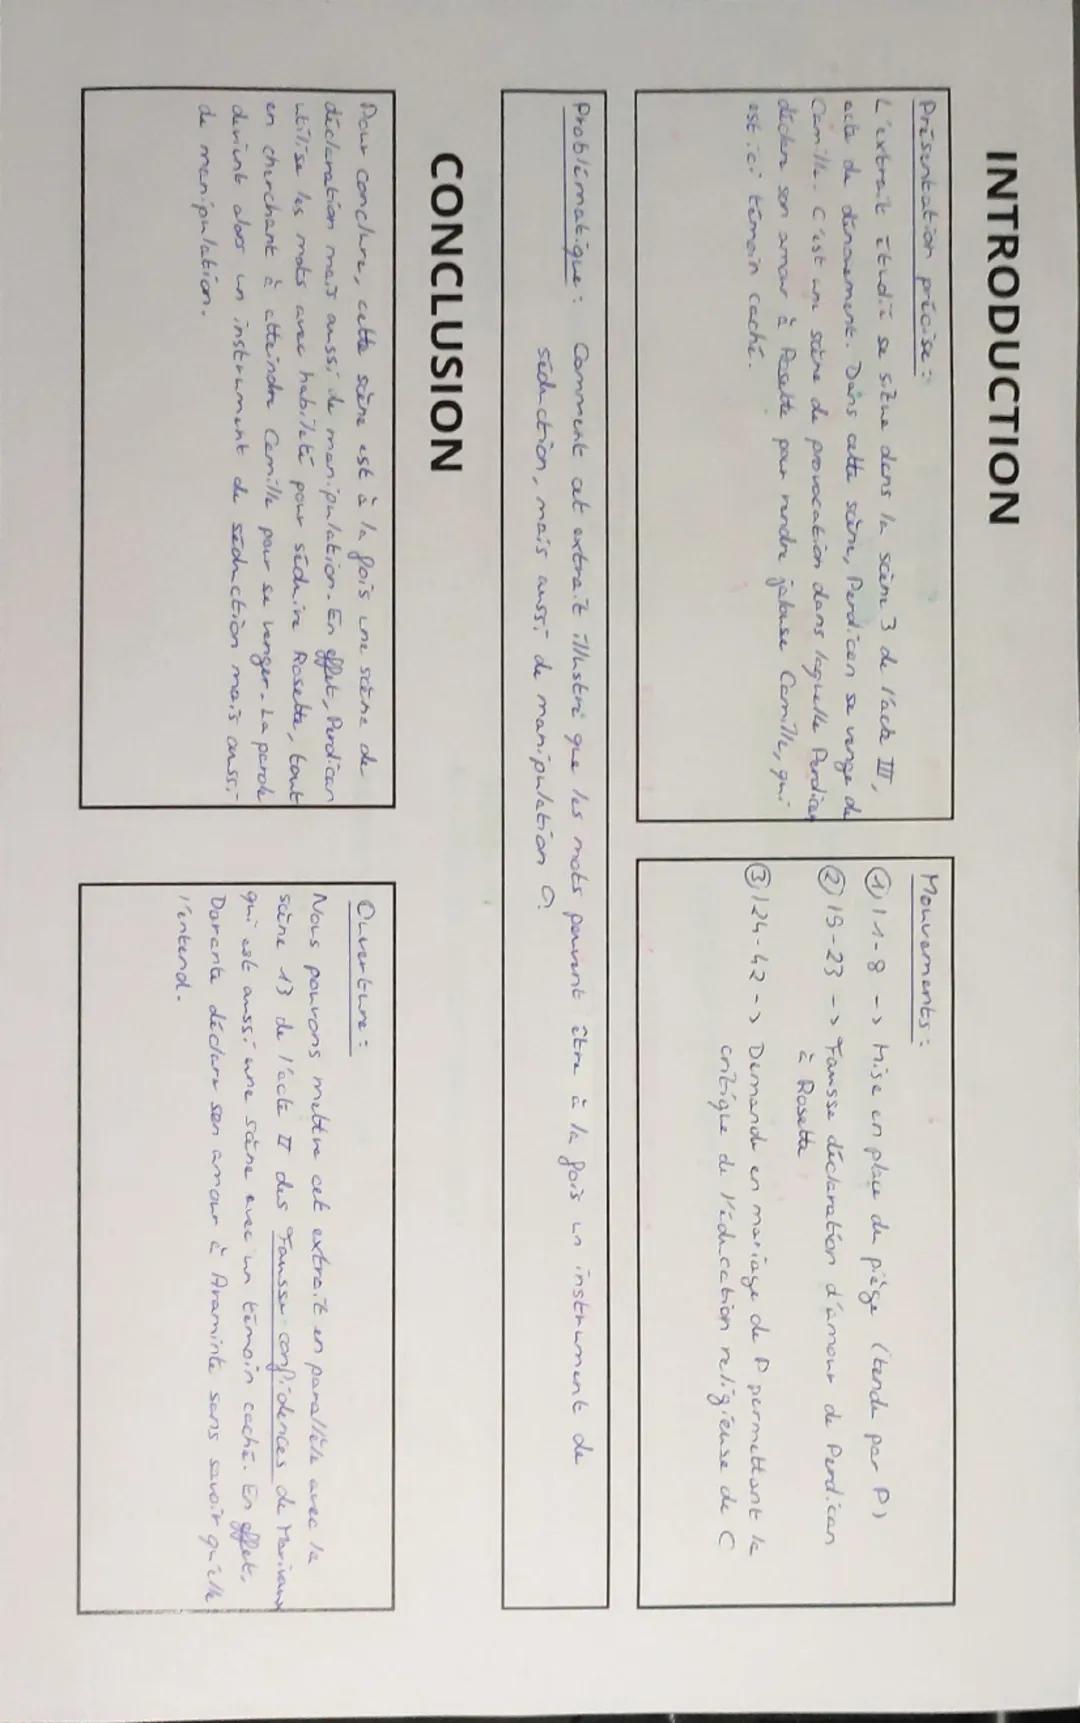 INTRODUCTION
Présentation précise :
L'extrait étudié se situe dans la scène 3 de l'acte III,
acte de dénouement. Dans cette scène, Perdican se venge de
Camille. C'est une scène de provocation dans laquelle Perdican
déclare son amour à Rosette pour rendre jalouse Camille, qui
est ici témoin caché.
Mouvements :
① l1-8 -> Mise en place du piège (tendu par P)
② l9-23 -> Fausse déclaration d'amour de Perdican
à Rosette
③ l24-42 -> Demande en mariage de P permettant la
critique de l'éducation religieuse de C
Problématique : Comment cet extrait illustre que les mots peuvent être à la fois un instrument de
séduction, mais aussi de manipulation ?
CONCLUSION
Pour conclure, cette scène est à la fois une scène de
déclaration mais aussi de manipulation. En effet, Perdican
utilise les mots avec habileté pour séduire Rosette, tout
en cherchant à atteindre Camille pour se venger. La parole
devient alors un instrument de séduction mais aussi
de manipulation.
Ouverture :
Nous pouvons mettre cet extrait en parallèle avec la
scène 13 de l'acte II des Fausses confidences de Marivaux
qui est aussi une scène avec un témoin caché. En effet,
Dorante déclare son amour à Araminte sans savoir qu'elle
l'entend.